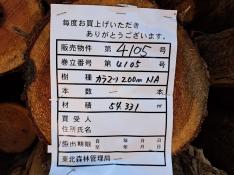 毎度お買上げいただき
ありがとうございます。
販売物件 第 4105 号
巻立番号 第 4105 号
樹種 カラマツ 2.00m NA
本数 - 本
材積 54.331 m³
買受人
住所氏名
搬出期限 自 年 月 日
至 年 月 日
東北森林管理局